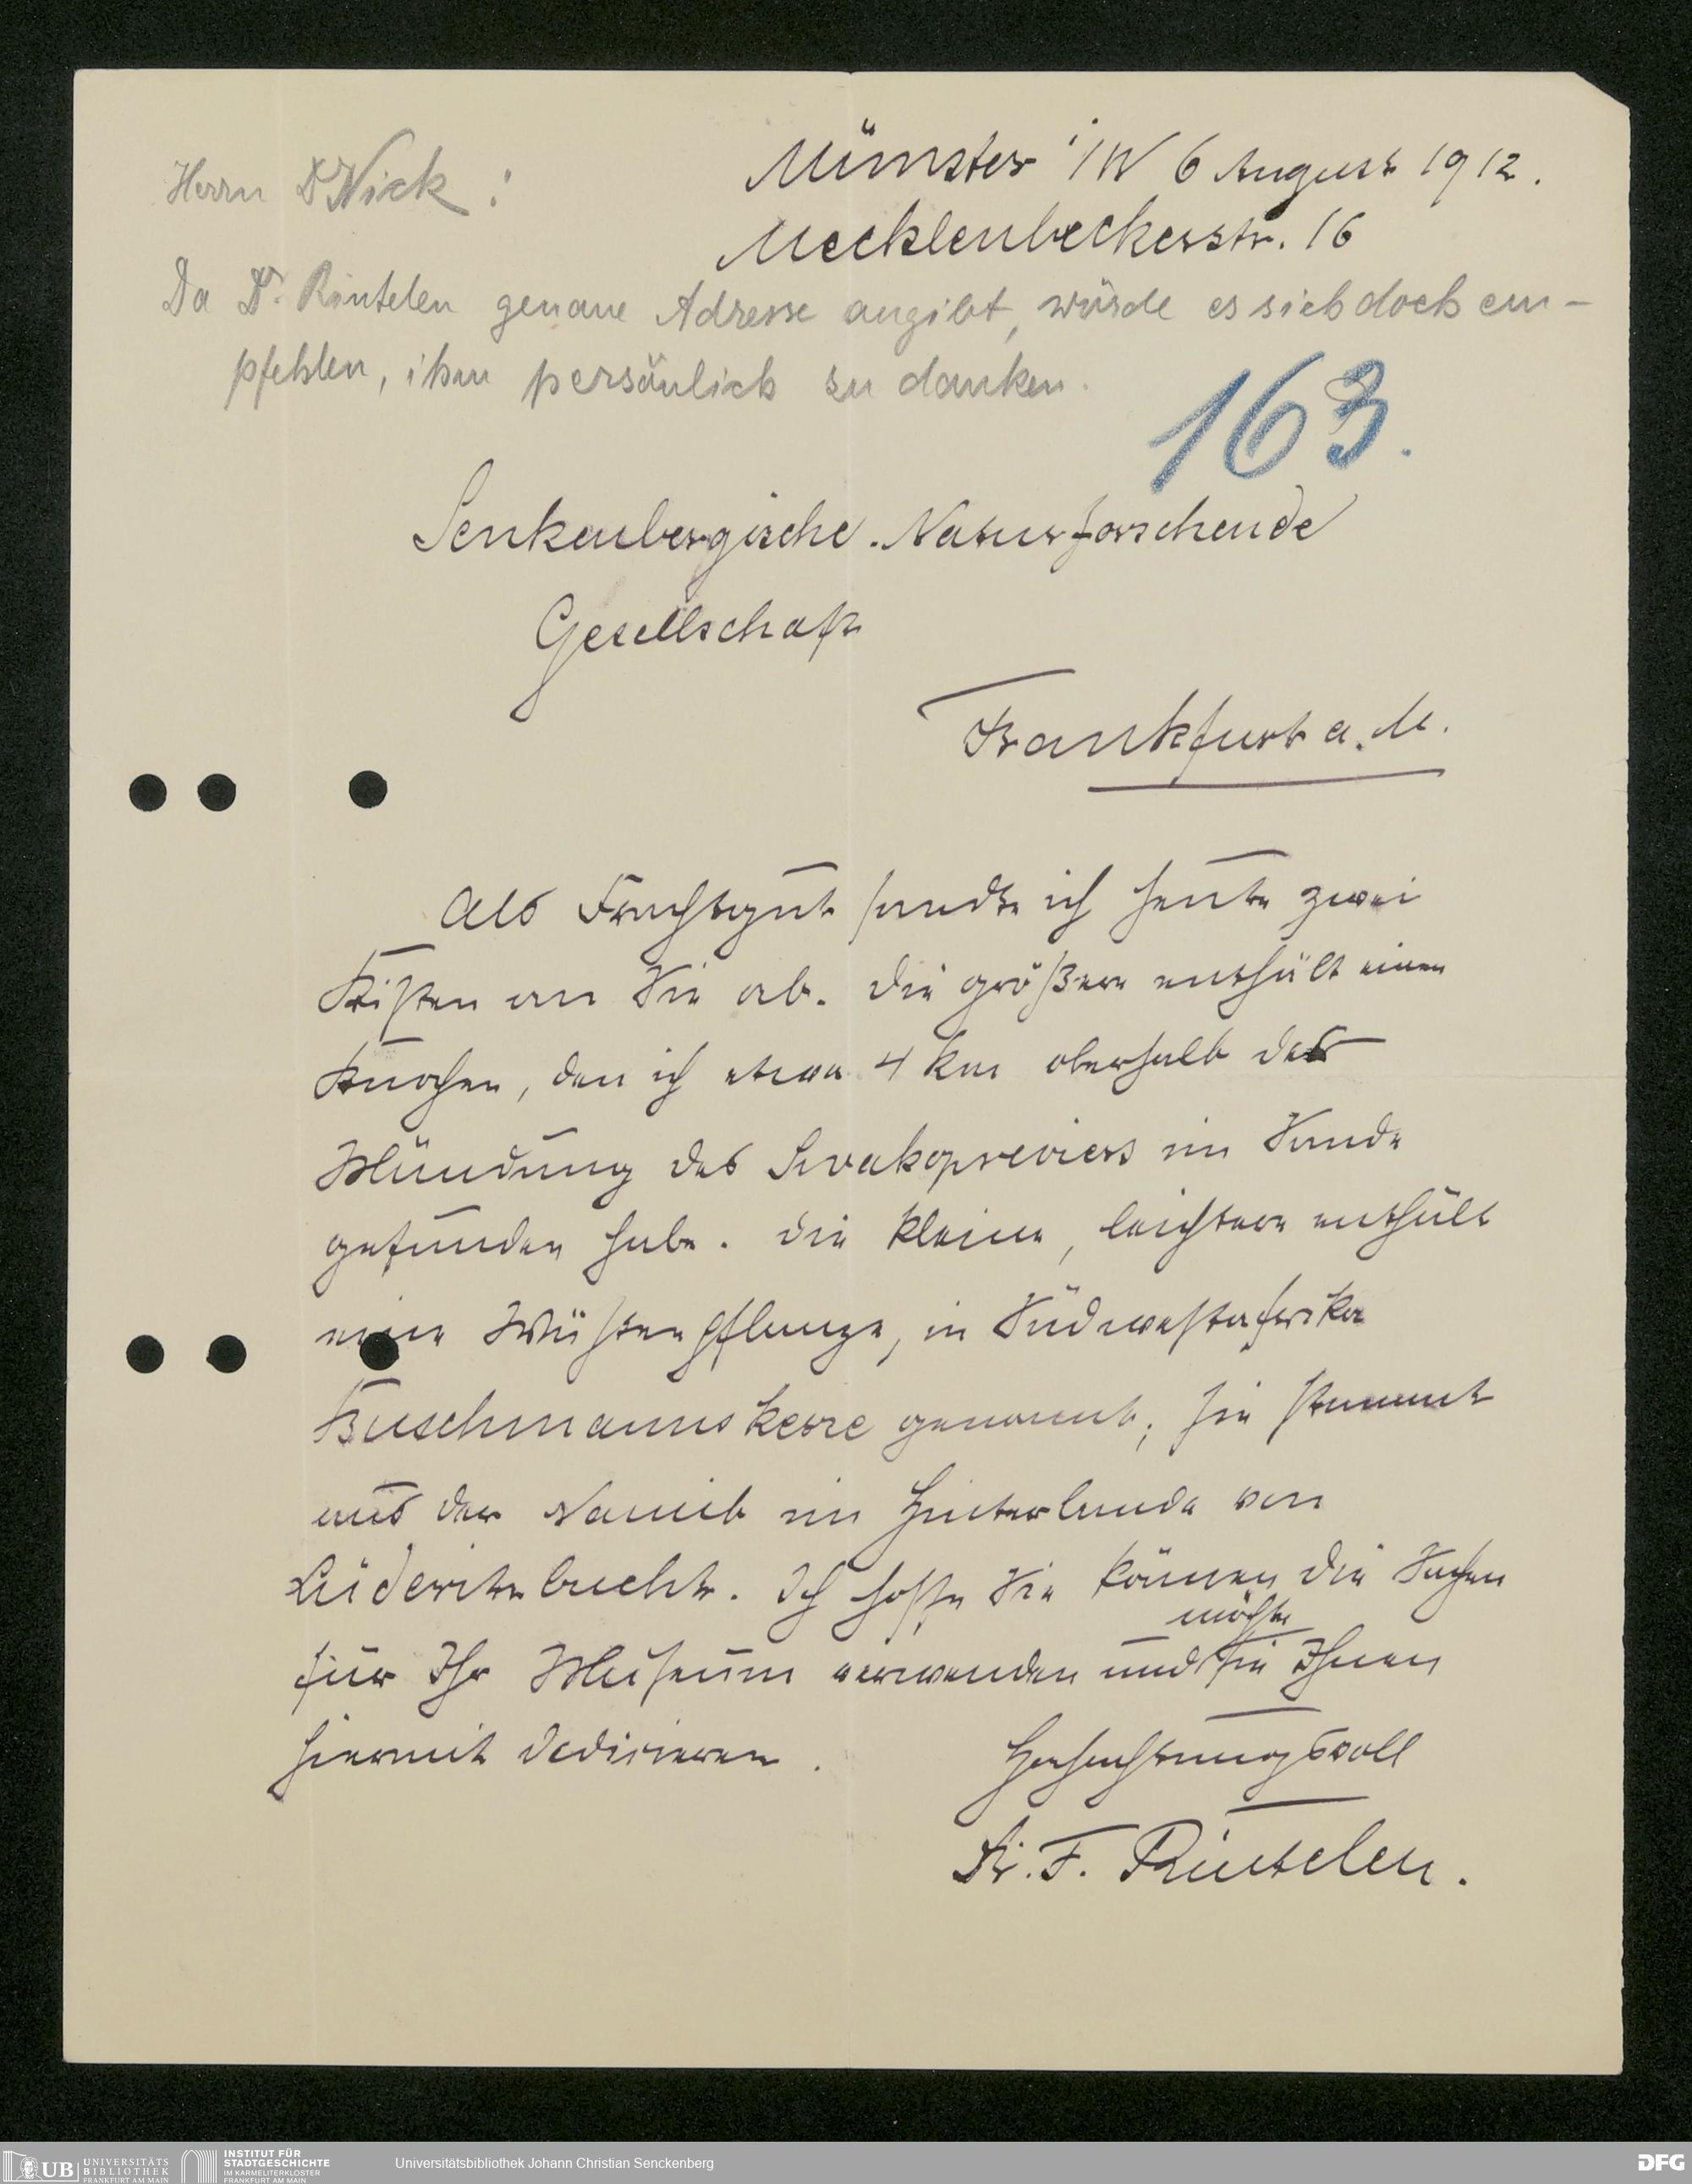 Münster i/W 6 August 1912.
Mecklenbeckerstr. 16
Herrn Dr Nick :
Da Dr. Rintelen genaue Adresse angibt, würde es sich doch em-
pfehlen, ihm persönlich zu danken.
163.
Senkenbergische Naturforschende
Gesellschaft
Frankfurt a. M.
Als Frachtgut sandte ich heute zwei
Kisten an Sie ab. Die größere enthält einen
Knochen, den ich etwa 4 km oberhalb der
Mündung des Swakopreviers im Sande
gefunden habe. Die kleine, leichtere enthält
eine Wüstenpflanze, in Südwestafrika
Buschmannskerze genannt; sie stammt
aus der Namib im Hinterlande von
Lüderitzbucht. Ich hoffe Sie können die Sachen
für Ihr Museum verwenden und möchte sie Ihnen
hiermit dedicieren.
Hochachtungsvoll
Dr. F. Rintelen.
UB UNIVERSITÄTS
BIBLIOTHEK
FRANKFURT AM MAIN
INSTITUT FÜR
STADTGESCHICHTE
IM KARMELITERKLOSTER
FRANKFURT AM MAIN
Universitätsbibliothek Johann Christian Senckenberg
DFG